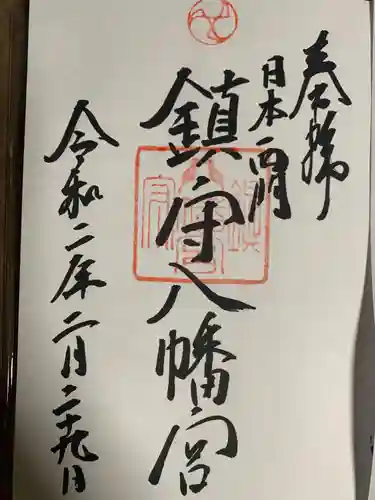 奉拝
日本一社
鎮守八幡宮
令和二年二月二十九日